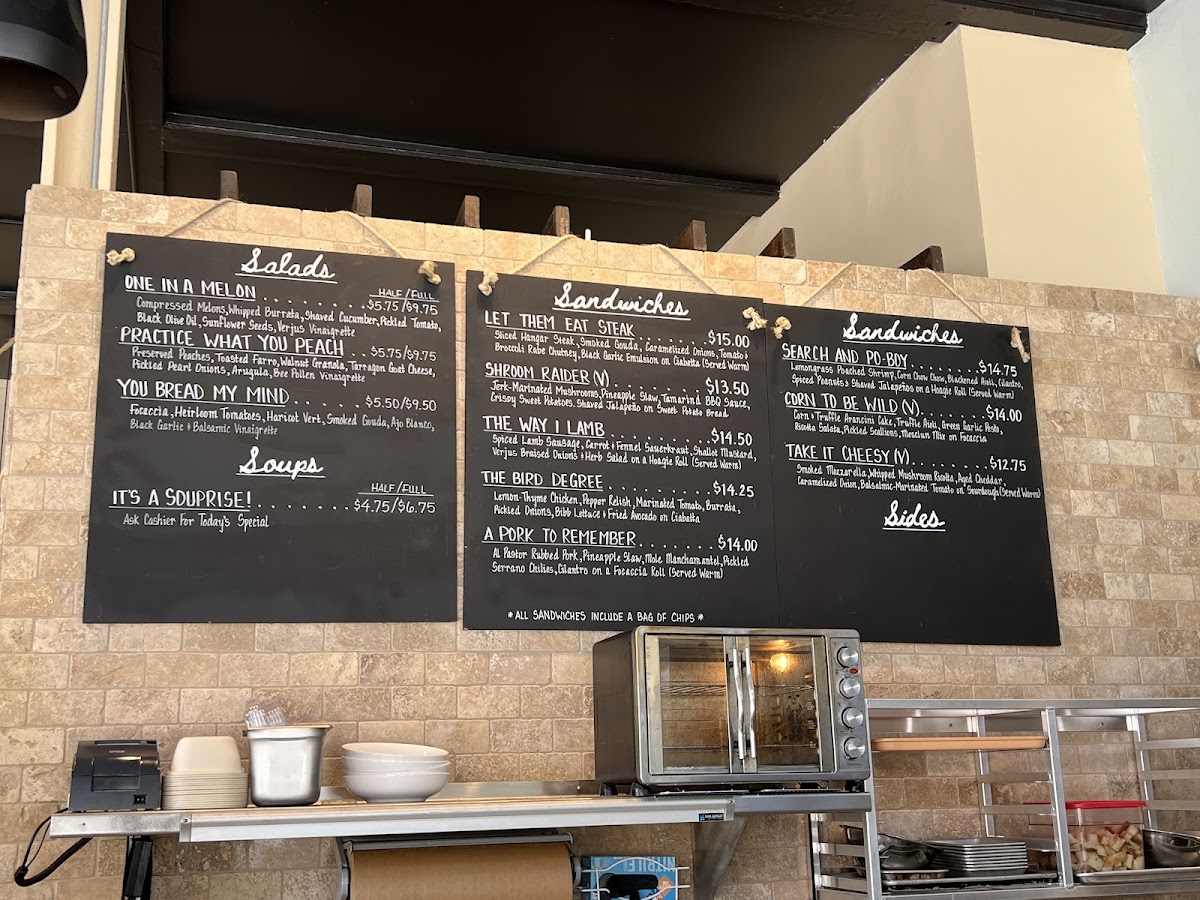 Salads
HALF/FULL
ONE IN A MELON . . . . . . . . . . $5.75/$9.75
Compressed Melons, Whipped Burrata, Shaved Cucumber, Pickled Tomato,
Black Olive Oil, Sunflower Seeds, Verjus Vinaigrette
PRACTICE WHAT YOU PEACH . . $5.75/$9.75
Preserved Peaches, Toasted Farro, Walnut Granola, Tarragon Goat Cheese,
Pickled Pearl Onions, Arugula, Bee Pollen Vinaigrette
YOU BREAD MY MIND . . . . . . . $5.50/$9.50
Focaccia, Heirloom Tomatoes, Haricot Vert, Smoked Gouda, Ajo Blanco,
Black Garlic + Balsamic Vinaigrette
Soups
HALF/FULL
IT'S A SOUPRISE! . . . . . . . . . . $4.75/$6.75
Ask Cashier For Today's Special
Sandwiches
LET THEM EAT STEAK . . . . . . . $15.00
Sliced Hangar Steak, Smoked Gouda, Caramelized Onions, Tomato +
Broccoli Rabe Chutney, Black Garlic Emulsion on Ciabatta (Served Warm)
SHROOM RAIDER (V) . . . . . . . . . $13.50
Jerk-Marinated Mushrooms, Pineapple Slaw, Tamarind BBQ Sauce,
Crispy Sweet Potatoes, Shaved Jalapeño on Sweet Potato Bread
THE WAY I LAMB . . . . . . . . . . $14.50
Spiced Lamb Sausage, Carrot + Fennel Sauerkraut, Shallot Mustard,
Verjus Braised Onions + Herb Salad on a Hoagie Roll (Served Warm)
THE BIRD DEGREE . . . . . . . . . . $14.25
Lemon-Thyme Chicken, Pepper Relish, Marinated Tomato, Burrata,
Pickled Onions, Bibb Lettuce + Fried Avocado on Ciabatta
A PORK TO REMEMBER . . . . . . . $14.00
Al Pastor Rubbed Pork, Pineapple Slaw, Mole Manchamantel, Pickled
Serrano Chilies, Cilantro on a Focaccia Roll (Served Warm)
* ALL SANDWICHES INCLUDE A BAG OF CHIPS *
Sandwiches
SEARCH AND PO-BOY . . . . . . . . $14.75
Lemongrass Poached Shrimp, Corn Chow Chow, Blackened Aioli, Cilantro,
Spiced Peanuts + Shaved Jalapeños on a Hoagie Roll (Served Warm)
CORN TO BE WILD (V) . . . . . . . . $14.00
Corn + Truffle Arancini Cake, Truffle Aioli, Green Garlic Pesto,
Ricotta Salata, Pickled Scallions, Mesclun Mix on Focaccia
TAKE IT CHEESY (V) . . . . . . . . . $12.75
Smoked Mozzarella, Whipped Mushroom Ricotta, Aged Cheddar,
Caramelized Onion, Balsalmic-Marinated Tomato on Sourdough (Served Warm)
Sides
EPSON
NITRILE